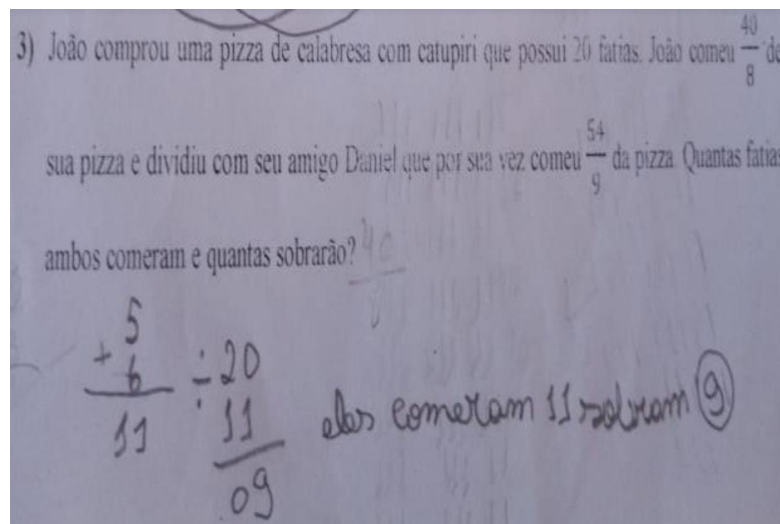 3) João comprou uma pizza de calabresa com catupiri que possui 20 fatias. João comeu 40/8 de
sua pizza e dividiu com seu amigo Daniel que por sua vez comeu 54/9 da pizza. Quantas fatias
ambos comeram e quantas sobrarão?
5
+ 6
11
÷ 20
11
09
eles comeram 11 sobram 9